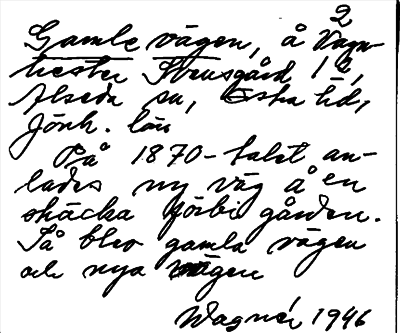 2
Gamle vägen, å Vagn-
hester Stensgård 1²,
Alseda sn, Östra hd,
Jönk. län
På 1870-talet an-
lades ny väg å en
sträcka förbi gården.
Så blev gamla vägen
och nya vägen
Wagnér 1946